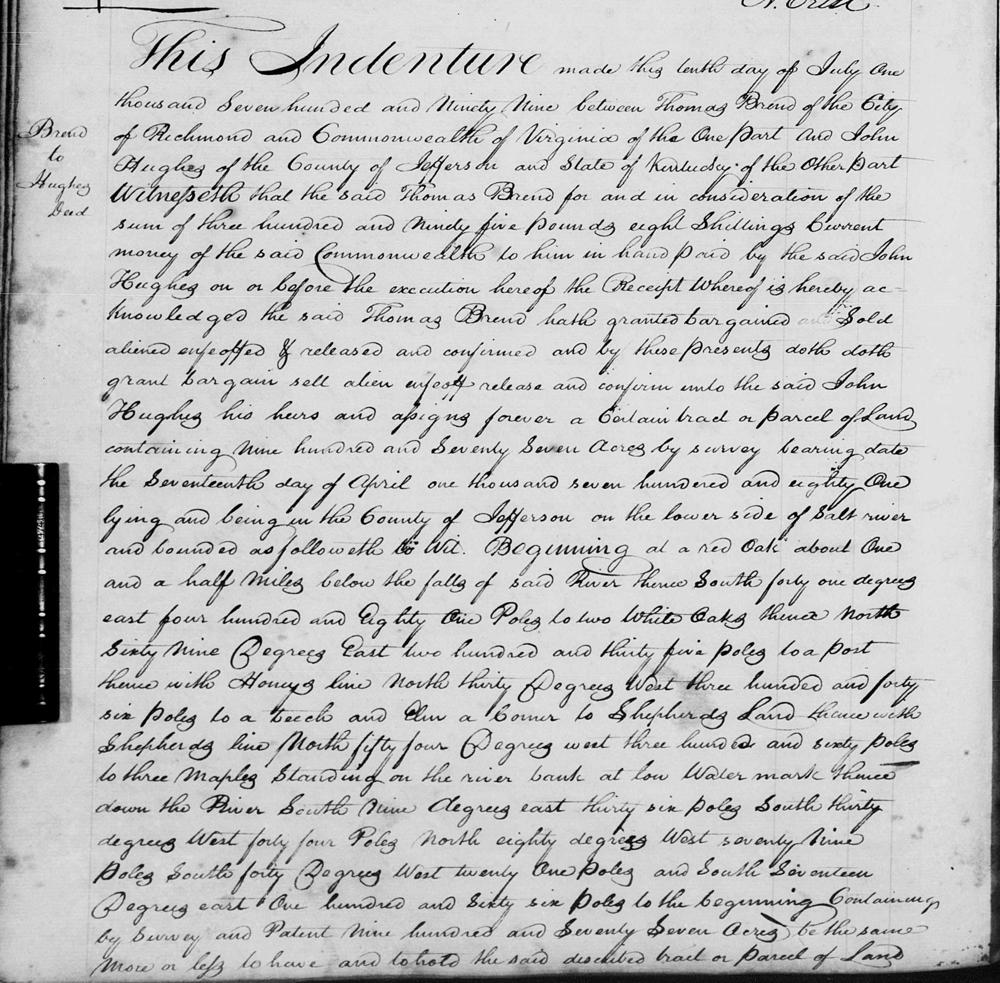 This Indenture made this tenth day of July One
thousand Seven hundred and Ninety Nine between Thomas Brend of the City
of Richmond and Commonwealth of Virginia of the One Part and John
Hughes of the County of Jefferson and State of Kentucky of the Other Part
Witnesseth that the said Thomas Brend for and in consideration of the
sum of three hundred and Ninety five Pounds eight Shillings Current
money of the said Commonwealth to him in hand Paid by the said John
Hughes on or before the execution hereof the Receipt Whereof is hereby ac-
knowledged the said Thomas Brend hath granted bargained and Sold
aliened enfeoffed & released and confirmed and by these Presents doth doth
grant bargain sell alien enfeoff release and confirm unto the said John
Hughes his heirs and assigns forever a Certain tract or Parcel of Land
containing Nine hundred and Seventy Seven Acres by survey bearing date
the Seventeenth day of April one thousand seven hundred and eighty One
lying and being in the County of Jefferson on the lower side of Salt river
and bounded as followeth to Wit. Beginning at a red Oak about One
and a half Miles below the falls of said River thence South forty one degrees
east four hundred and Eighty One Poles to two White Oaks thence North
Sixty Nine Degrees East two hundred and thirty five Poles to a Post
thence with Honeys line North thirty Degrees West three hundred and forty
six Poles to a beech and Elm a Corner to Shepherds Land thence with
Shepherds line North fifty four Degrees west three hundred and sixty Poles
to three Maples Standing on the river bank at low Water mark thence
down the River South Nine degrees east thirty six Poles South thirty
degrees West forty four Poles North eighty degrees West seventy Nine
Poles South forty Degrees West twenty One Poles and South Seventeen
Degrees east One hundred and Sixty six Poles to the beginning Containing
by Survey and Patent Nine hundred and Seventy Seven Acres be the same
More or less to have and to hold the said described tract or Parcel of Land
Brend
to
Hughes
Deed